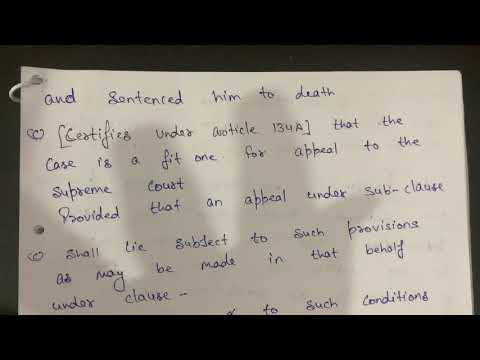 and sentenced him to death
(c) [Certifies under article 134A] that the
case is a fit one for appeal to the
supreme court
Provided that an appeal under sub-clause
(c) shall lie subject to such provisions
as may be made in that behalf
under clause -
to such conditions